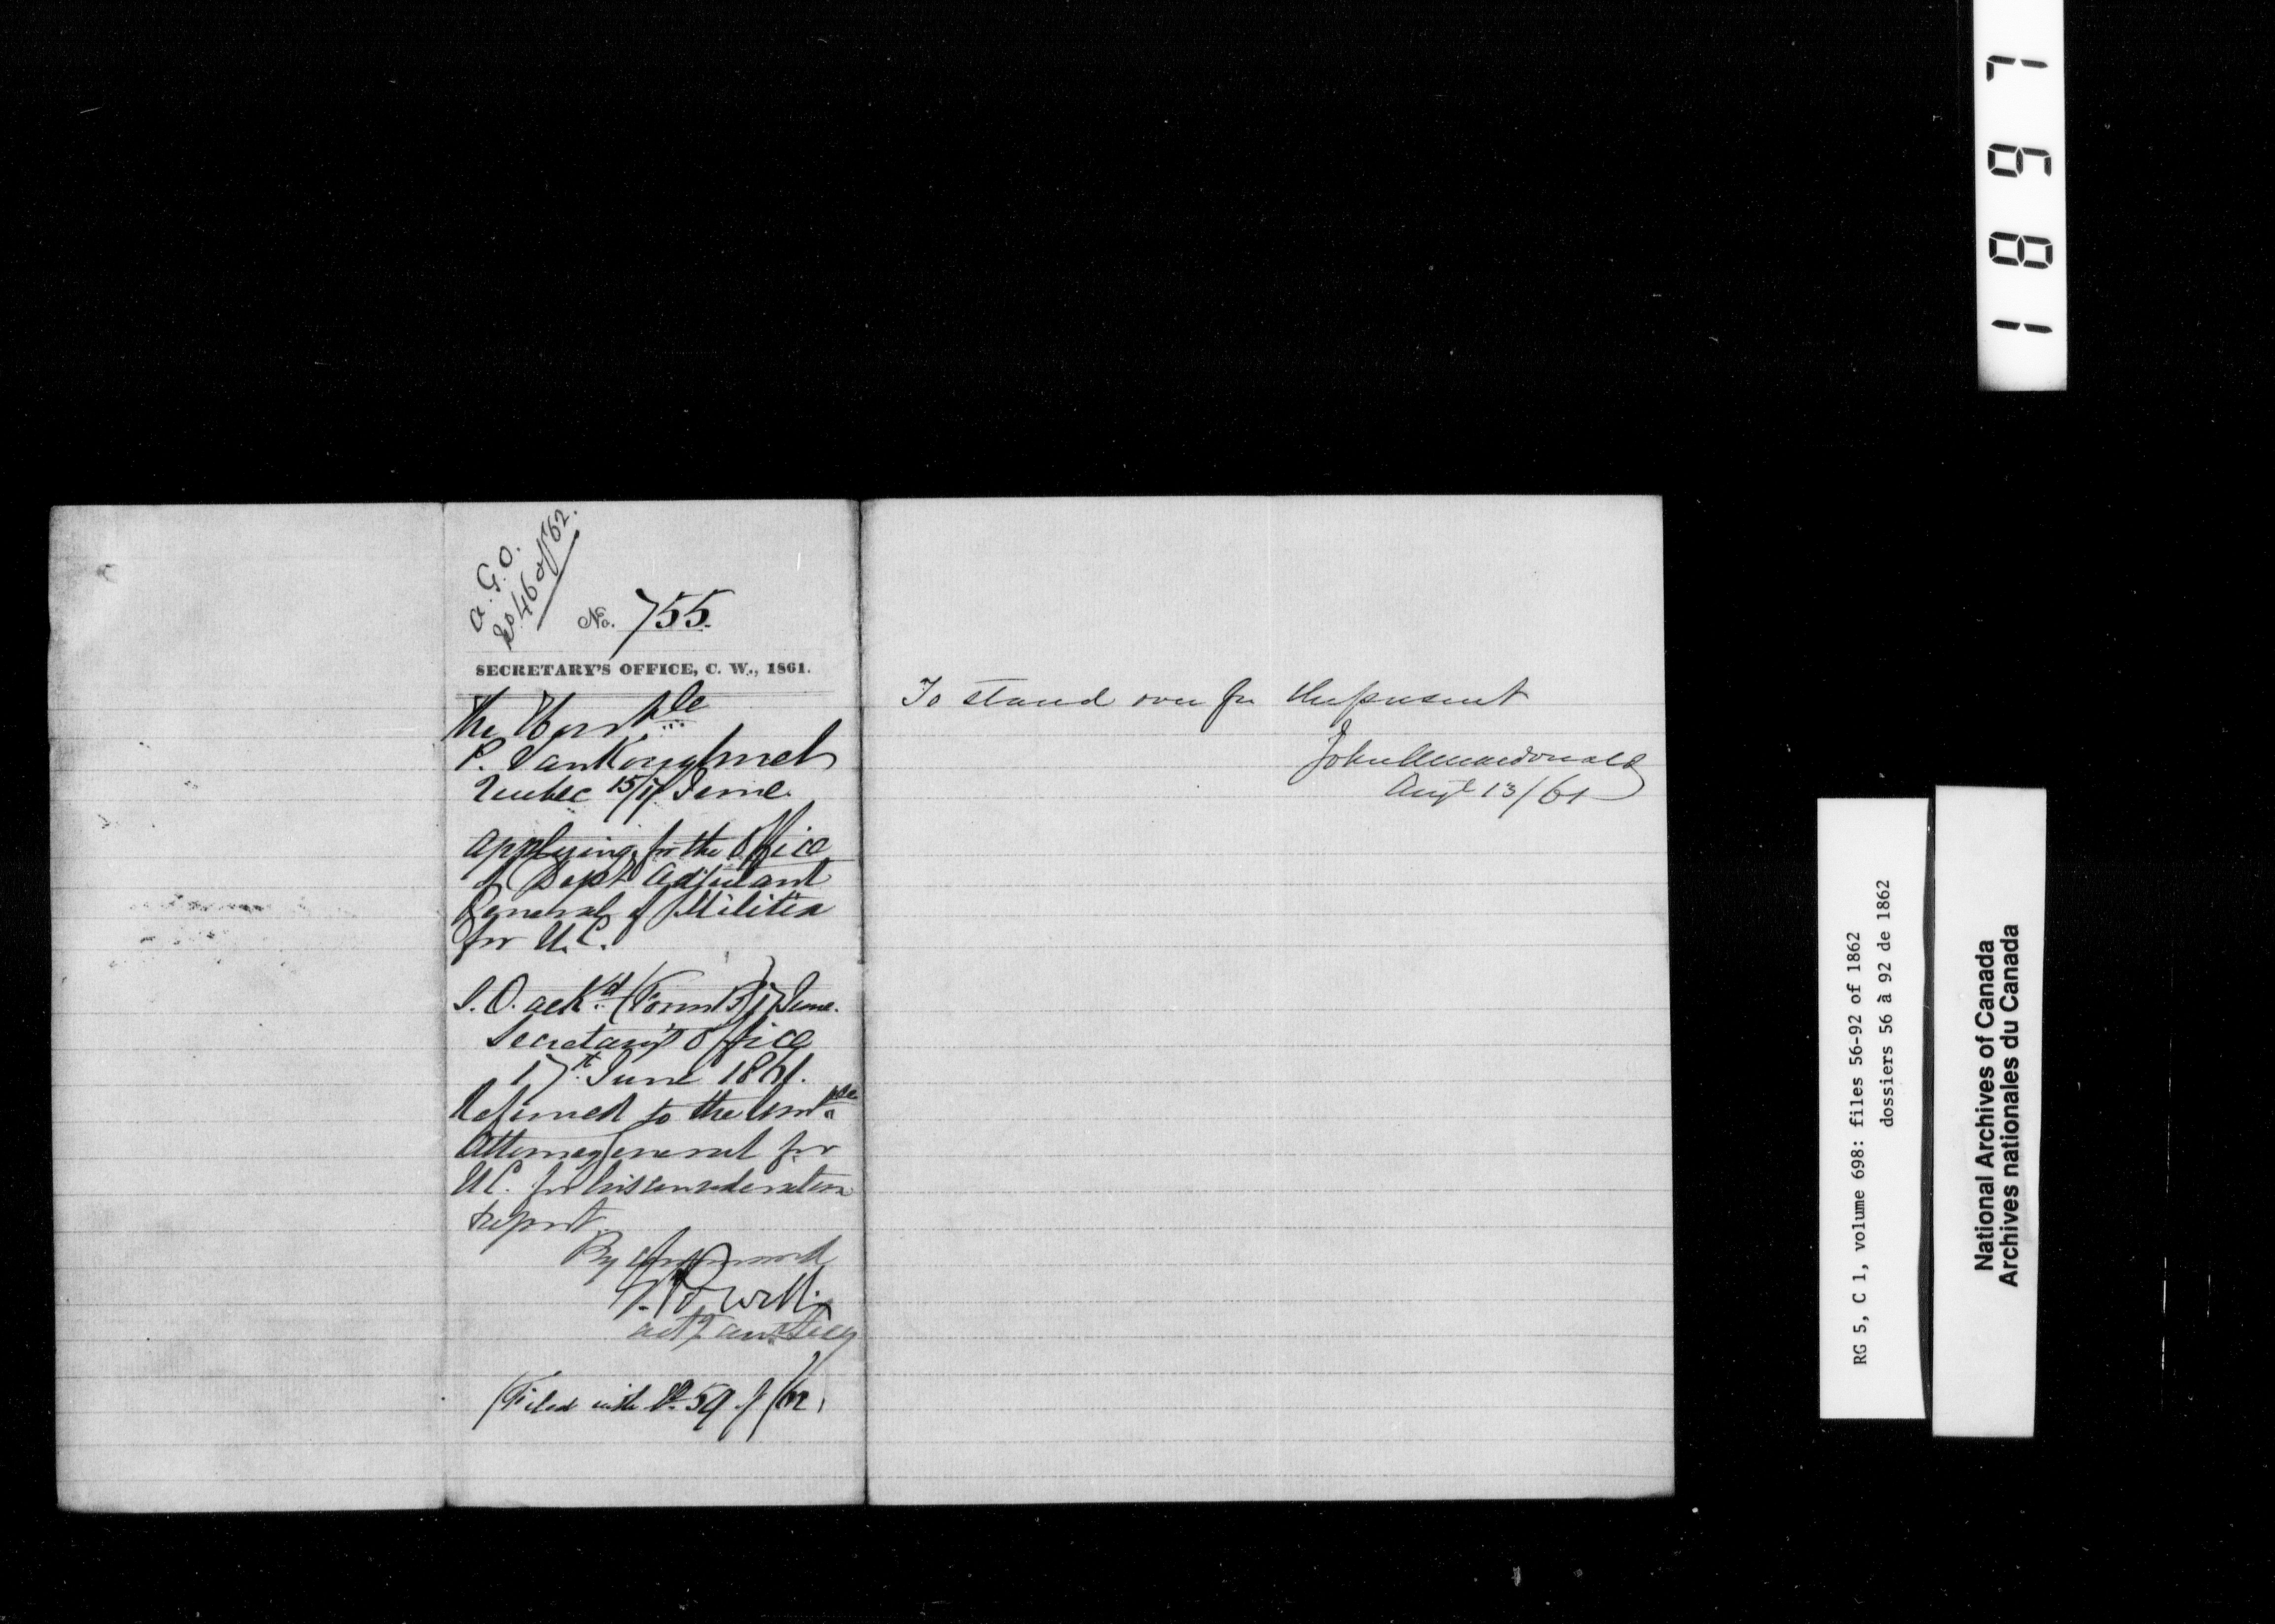 A.G.O.
No 46 of '62.
No. 755.
SECRETARY'S OFFICE, C. W., 1861.
The Hon'ble
P. VanKoughnet
Quebec 15/17 June.
Applying for the Office
of Dept Adjutant
General of Militia
for U.C.
S.O. ackd. (Form 3) 17 June.
Secretary's Office
17th June 1861.
Referred to the Honble
Attorney General for
U.C. for his consideration
& report.
By Command
G. Powell.
actg asst Secy
(Filed with No. 59 of /62)
To stand over for the present
John A Macdonald
Augt 13/61
1897
RG 5, C 1, volume 698: files 56-92 of 1862
dossiers 56 à 92 de 1862
National Archives of Canada
Archives nationales du Canada